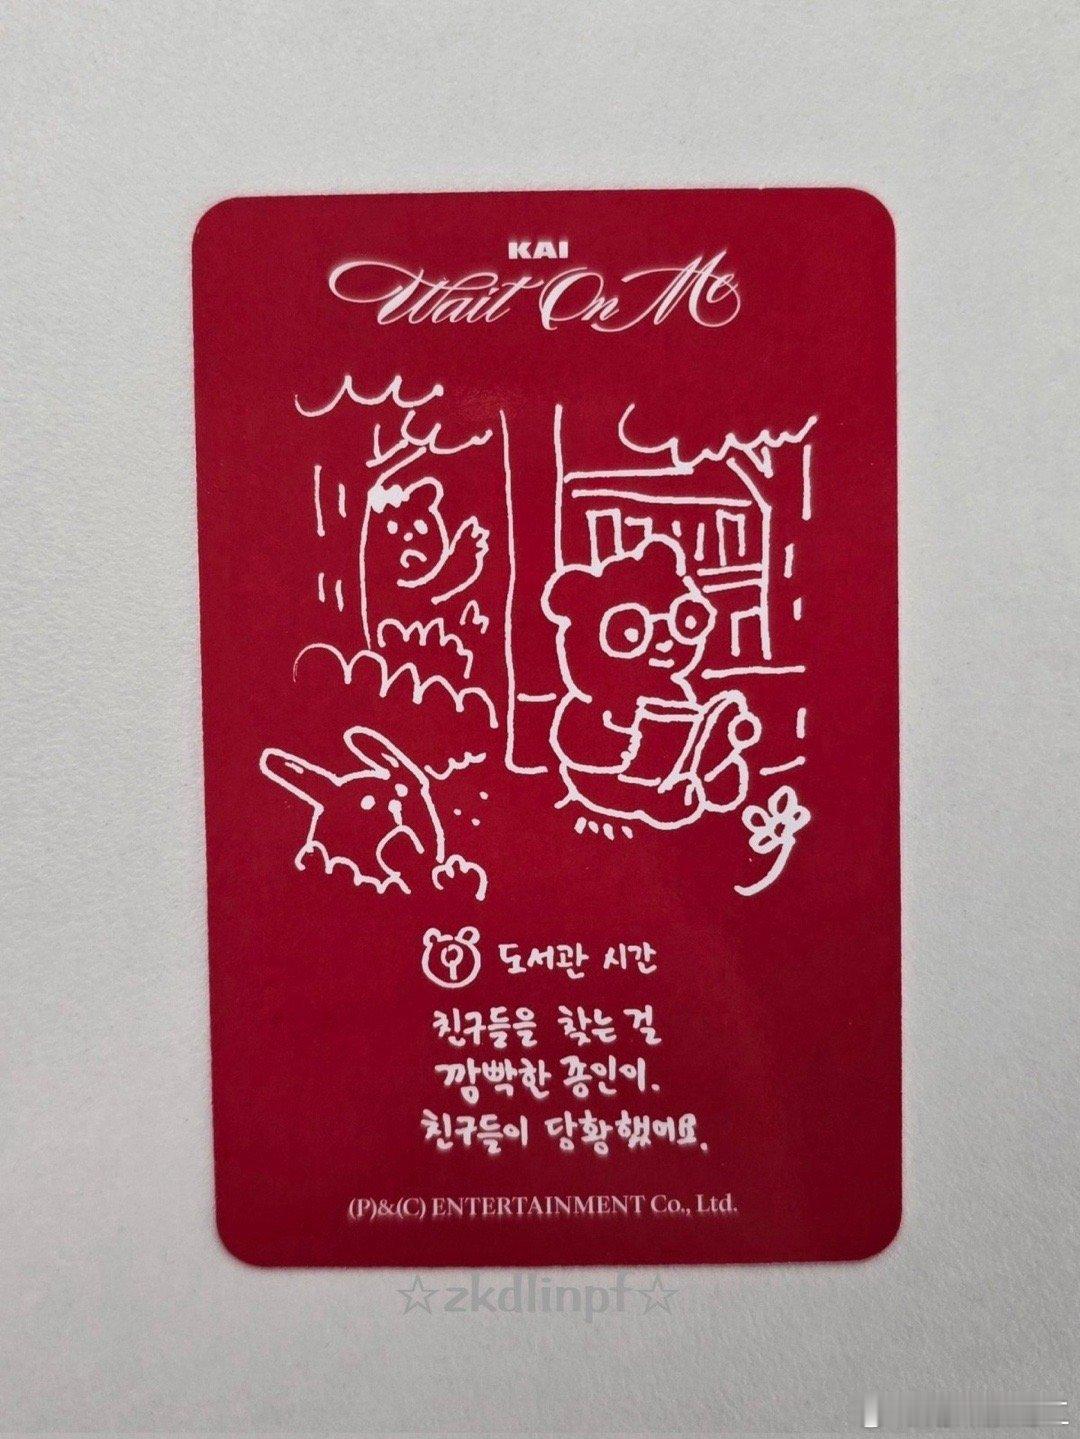 KAI
Wait On Me
도서관 시간
친구들을 찾는 걸
깜빡한 종인이.
친구들이 당황했어요.
(P)&(C) ENTERTAINMENT Co., Ltd.
☆zkdlinpf☆